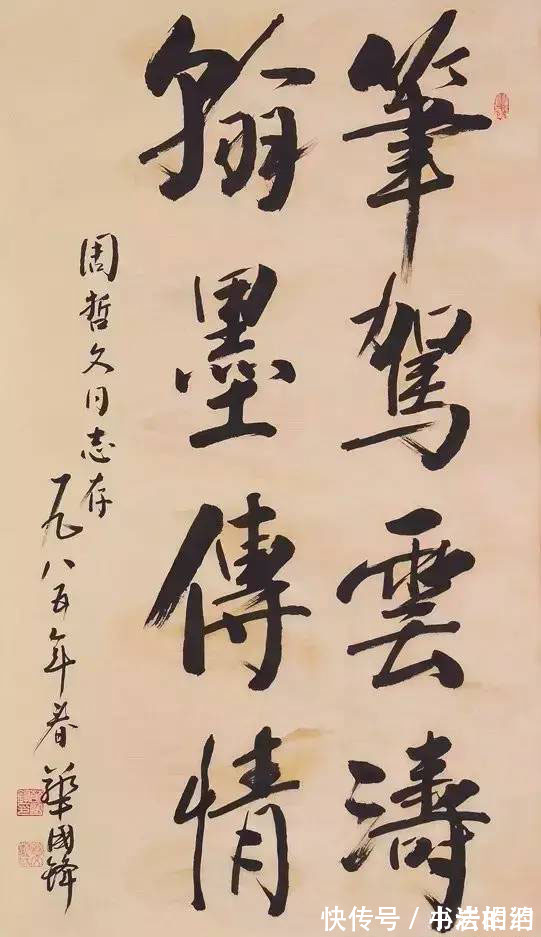 筆駕雲濤
翰墨傳情
周哲文同志存
一九八五年春 華國鋒
快传号 /